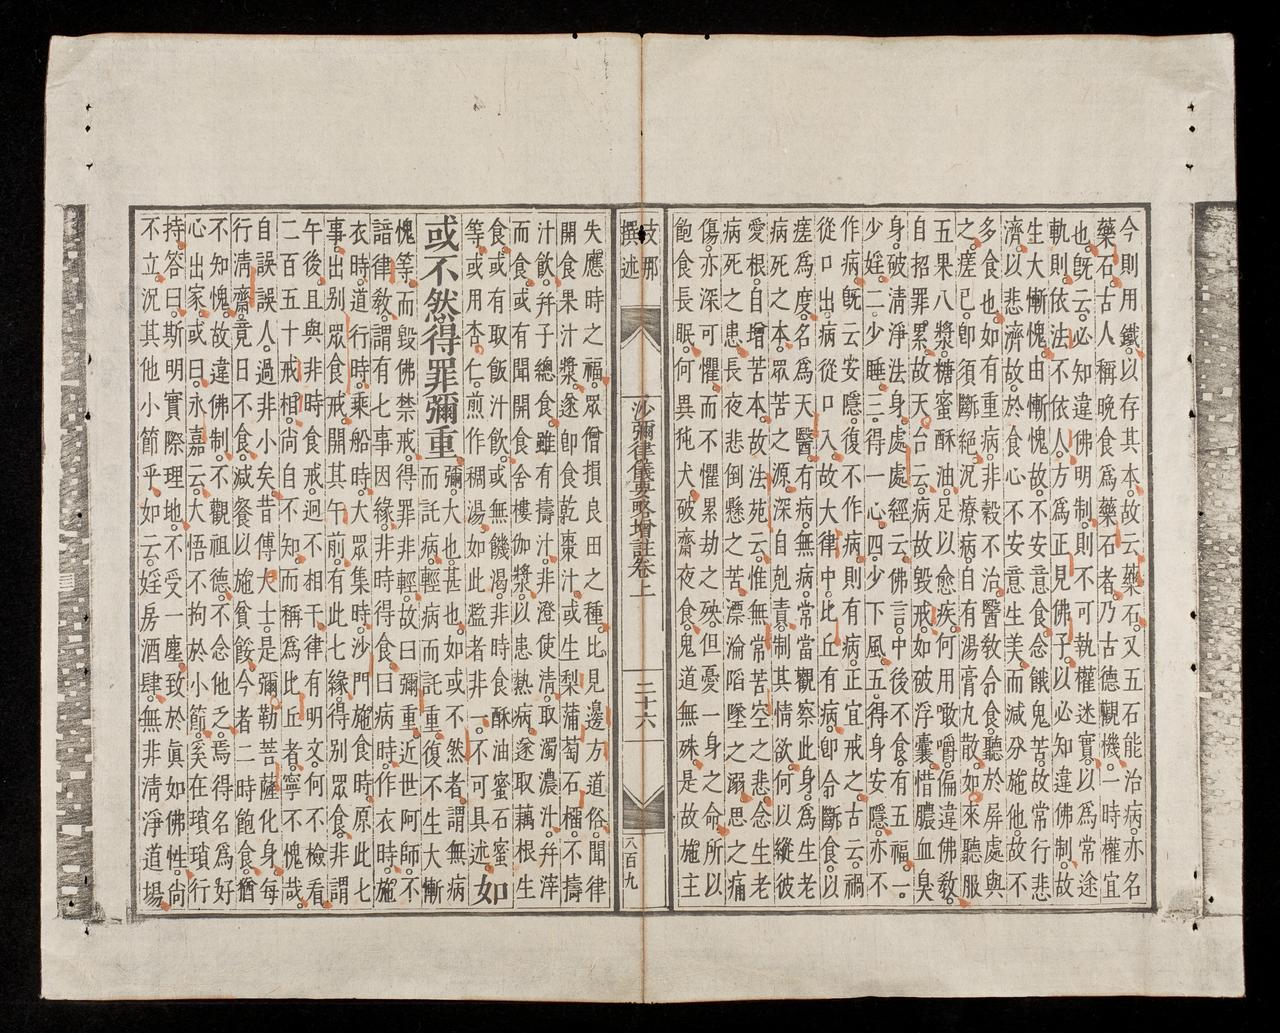 今則用鐵。以存其本。故云藥石。又五石能治病。亦名
藥石。古人稱晚食爲藥石者。乃古德觀機。一時權宜
也。既云。必知違佛明制。則不可執權迷實。以爲常途
軌則。依法不依人。方爲正見佛子。以必知違佛制。故
生大慚愧。由慚愧故。不安意食。念餓鬼苦。故常行悲
濟。以悲濟故。於食心不安意生美。而減分施他。故不
多食也。如有重病。非穀不治。醫敎分食。聽於屏處與
之。瘥已。卽須斷絕。況療病。自有湯膏丸散。如來聽服
五果八漿。糖蜜酥油。足以愈疾。何用噉嚼。偏違佛敎。
自招罪累。故天台云。病故毀戒。如破浮囊。惜膿血臭
身。破清淨法身。處處經云。佛言。中後不食。有五福。一。
少婬。二。少睡。三。得一心。四。少下風。五。得身安隱。亦不
作病。旣云安隱。復不作病。則有病。正宜戒之。古云。禍
從口出。病從口入。故大律中。比丘有病。卽令斷食。以
瘥爲度。名爲天醫。有病。無病。常當觀察此身。爲生老
病死之本。眾苦之源。深自剋責。制其情欲。何以縱彼
愛根。自增苦本。故法苑云。惟無常苦空之悲。念生老
病死之患。長夜悲倒懸之苦。漂淪陷墜之溺。思之痛
傷。亦深可懼。而不懼累劫之殃。但憂一身之命。所以
飽食長眠。何異㹠犬。破齋夜食。鬼道無殊。是故施主
支那撰述
沙彌律儀要略增註卷上
三十六
八百九
失應時之福。眾僧損良田之種。比見邊方道俗。聞律
開食果汁漿。遂卽食乾棗汁。或生梨蒲萄石榴。不擣
汁飲。幷子總食。雖有擣汁。非澄使清。取濁濃汁。幷滓
而食。或有聞開食舍樓伽漿。以患熱病。遂取藕根生
食。或有取飯汁飲。或無饑渴。非時食酥油蜜石蜜
等。或用杏仁。煎作稠湯。如此濫者非一。不可具述。如
或不然。得罪彌重。彌。大也。甚也。如或不然者。謂無病
而託病。輕病而託重。復不生大慚
愧等。而毀佛禁戒。得罪非輕。故曰彌重。近世阿師。不
諳律敎。謂有七事因緣。非時得食。曰病時。作衣時。施
衣時。道行時。乘船時。大眾集時。沙門施食時。原此七
事。出別眾食戒。開其午前。有此七緣。得別眾食。非謂
午後。且與非時食戒。迥不相干。律有明文。何不檢看。
二百五十戒相。尙自不知。而稱爲比丘者。寧不愧哉。
自誤誤人。過非小矣。昔傅大士。是彌勒菩薩化身。每
行清齋。竟日不食。減餐以施貧餒。今者二時飽食。猶
不知愧。故違佛制。不觀祖德。不念他乏。焉得名爲好
心出家。或曰。永嘉云。大悟不拘於小節。奚在瑣瑣行
持。答曰。斯明實際理地。不受一塵。致於眞如佛性。尙
不立。況其他小節乎。如云。婬房酒肆。無非清淨道場